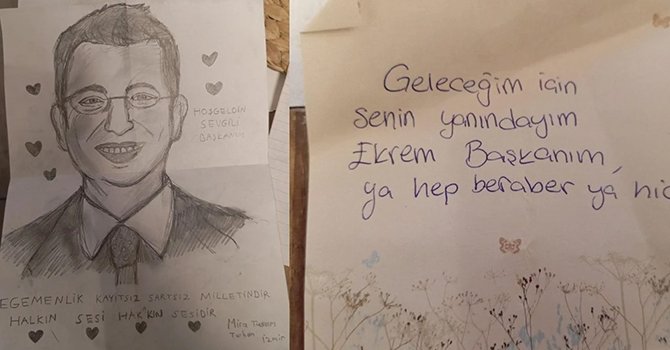 HOŞGELDİN
SEVGİLİ
BAŞKANIM
EGEMENLİK KAYITSIZ ŞARTSIZ MİLLETİNDİR
HALKIN SESİ HAK'KIN SESİDİR
Mira
İzmir
Geleceğim için
senin yanındayım
Ekrem Başkanım,
ya hep beraber ya hiç